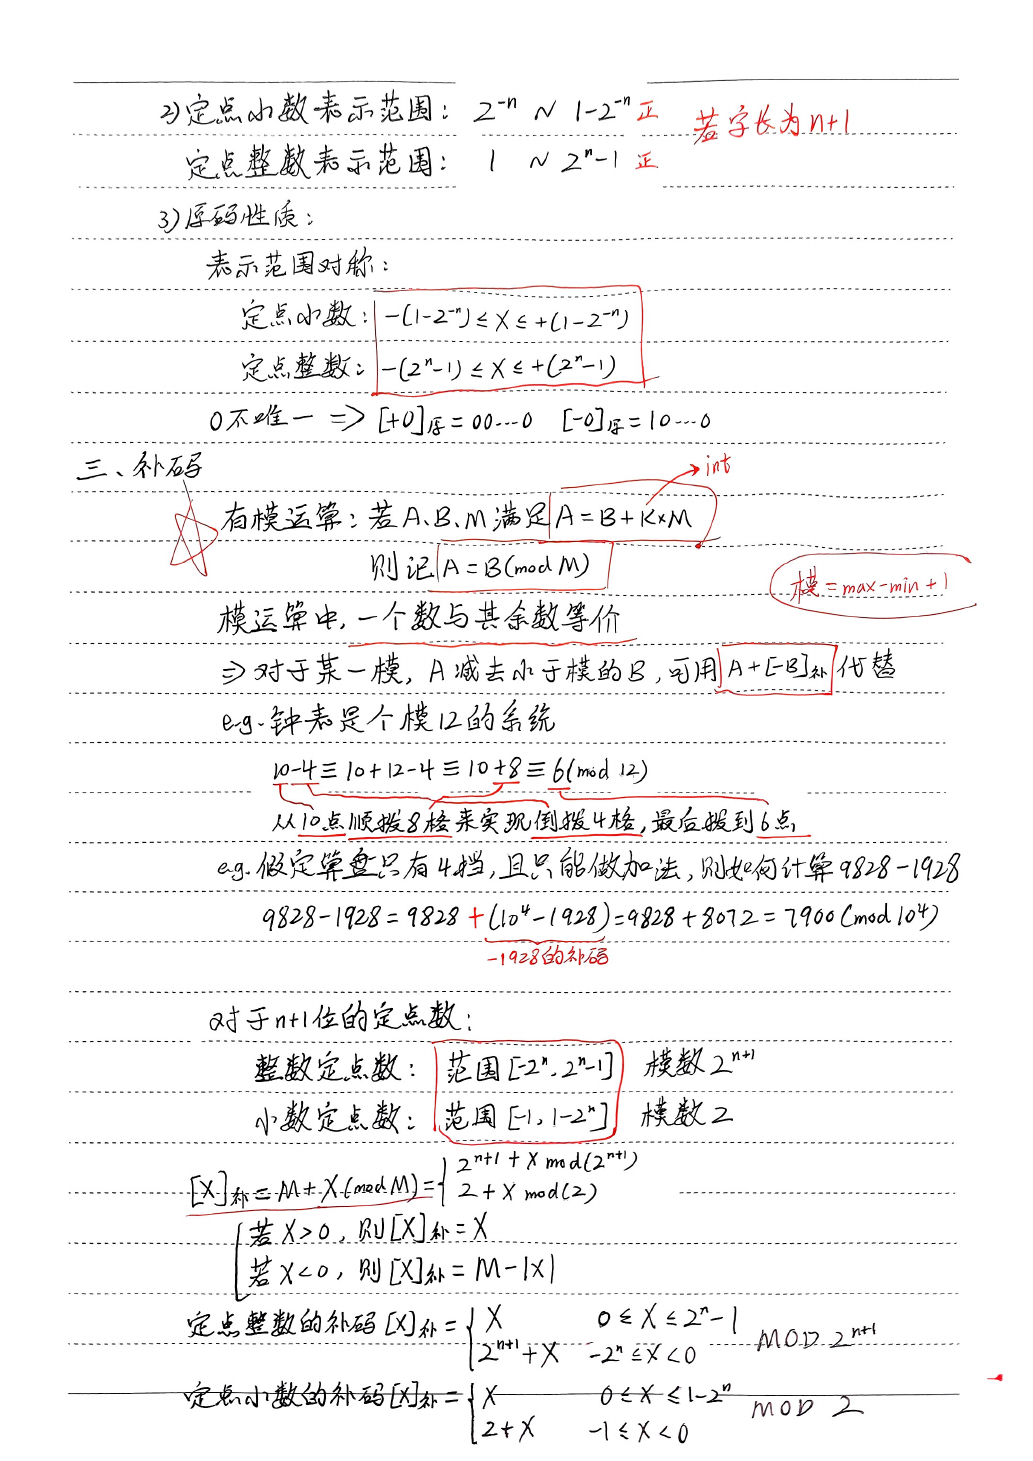 2) 定点小数表示范围: 2⁻ⁿ ~ 1-2⁻ⁿ 正 若字长为n+1
定点整数表示范围: 1 ~ 2ⁿ-1 正
3) 原码性质:
表示范围对称:
定点小数: -(1-2⁻ⁿ) ≤ X ≤ +(1-2⁻ⁿ)
定点整数: -(2ⁿ-1) ≤ X ≤ +(2ⁿ-1)
0不唯一 => [+0]原 = 00...0 [-0]原 = 10...0
三、补码
int
有模运算: 若A、B、M满足 A = B + K×M
则记 A = B (mod M)
模 = max-min+1
模运算中, 一个数与其余数等价
⇒ 对于某一模, A减去小于模的B, 可用 A+[-B]补 代替
e.g. 钟表是个模12的系统
10-4 ≡ 10+12-4 ≡ 10+8 ≡ 6 (mod 12)
从10点顺拨8格来实现倒拨4格, 最后拨到6点
e.g. 假定算盘只有4档, 且只能做加法, 则如何计算9828-1928
9828-1928 = 9828 + (10⁴-1928) = 9828 + 8072 = 7900 (mod 10⁴)
-1928的补码
对于n+1位的定点数:
整数定点数: 范围[-2ⁿ, 2ⁿ-1] 模数2ⁿ⁺¹
小数定点数: 范围[-1, 1-2ⁿ] 模数2
[X]补 = M+X (mod M) = { 2ⁿ⁺¹ + X mod(2ⁿ⁺¹)
2 + X mod(2)
若X>0, 则[X]补 = X
若X<0, 则[X]补 = M-|X|
定点整数的补码[X]补 = { X 0 ≤ X ≤ 2ⁿ-1
2ⁿ⁺¹+X -2ⁿ ≤ X < 0 MOD 2ⁿ⁺¹
定点小数的补码[X]补 = { X 0 ≤ X ≤ 1-2ⁿ MOD 2
2+X -1 ≤ X < 0